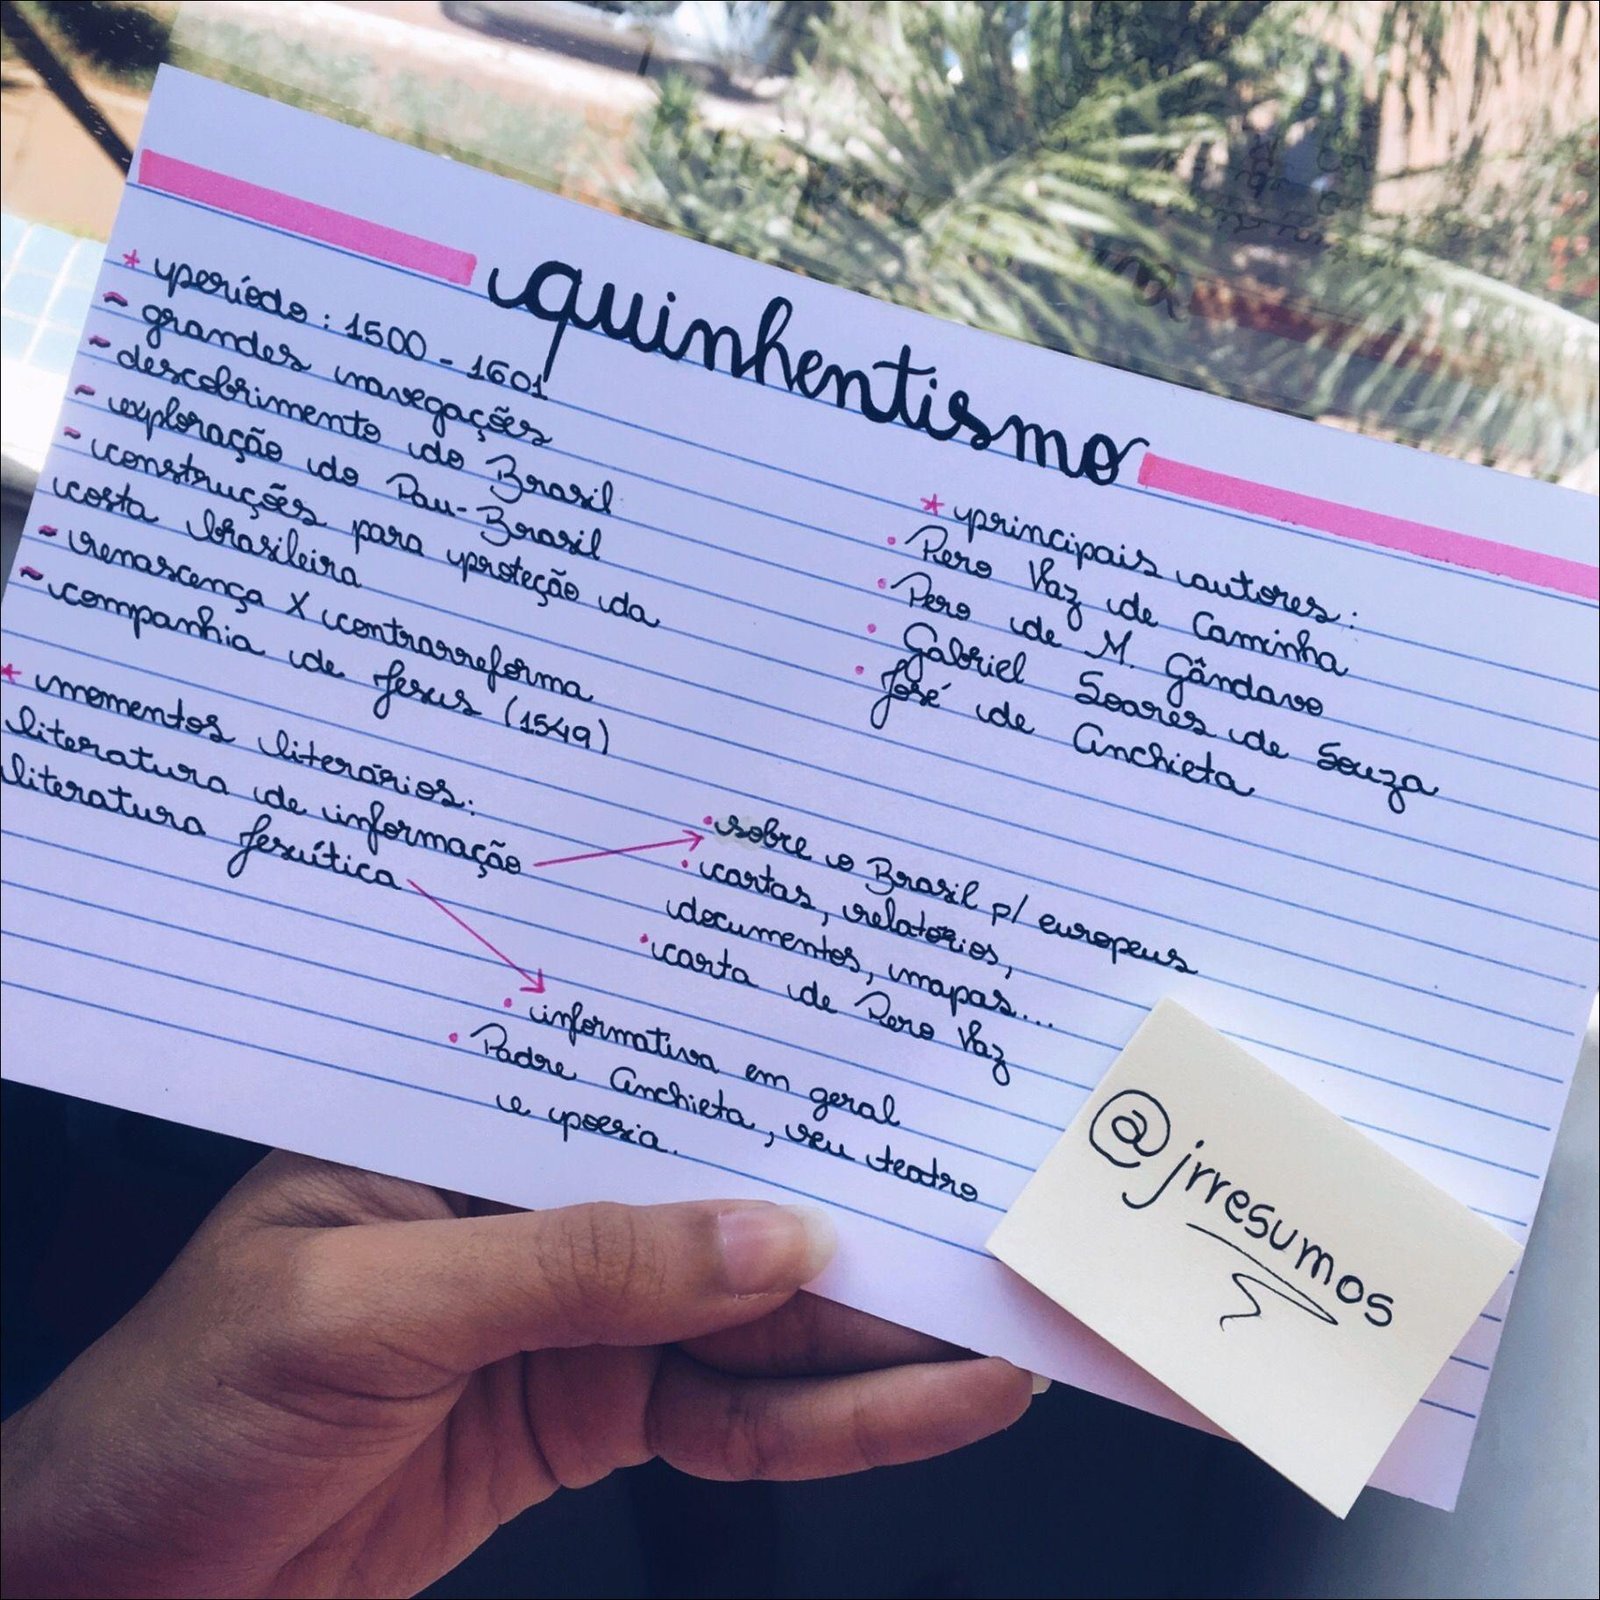 quinhentismo
* período: 1500 - 1601
~ grandes navegações
~ descobrimento do Brasil
~ exploração do Pau-Brasil
~ construções para proteção da
costa brasileira
~ renascença X contrarreforma
~ companhia de Jesus (1549)
* momentos literários:
literatura de informação
literatura Jesuítica
* principais autores:
• Pero Vaz de Caminha
• Pero de M. Gândavo
• Gabriel Soares de Souza
• José de Anchieta
• sobre o Brasil p/ europeus
• cartas, relatórios,
documentos, mapas...
• carta de Pero Vaz
• informativa em geral
• Padre Anchieta, seu teatro
e poesia.
@jrresumos